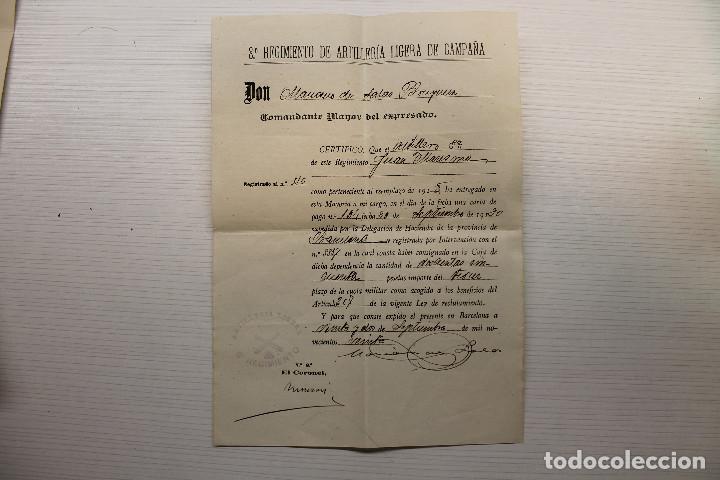 8.º REGIMIENTO DE ARTILLERÍA LIGERA DE CAMPAÑA
Don Mariano de Salas Bruguera
Comandante Mayor del expresado.
CERTIFICO: Que el artillero 2º
de este Regimiento Juan
Registrado al n.º
como perteneciente al reemplazo de 191 ha entregado en
esta Mayoría a mi cargo, en el día de la fecha una carta de
pago n.º fecha 20 de Septiembre de 1920
expedida por la Delegación de Hacienda de la provincia de
Barcelona y registrada por Intervención con el
n.º en la cual consta haber consignado en la Caja de
dicha dependencia la cantidad de doscientas cin-
cuenta pesetas importe del tercer
plazo de la cuota militar como acogido a los beneficios del
Artículo 267 de la vigente Ley de reclutamiento.
Y para que conste expido el presente en Barcelona a
veinte y dos de Septiembre de mil no-
vecientos veinte
V.º B.º
El Coronel,
REGIMIENTO
todocoleccion.net